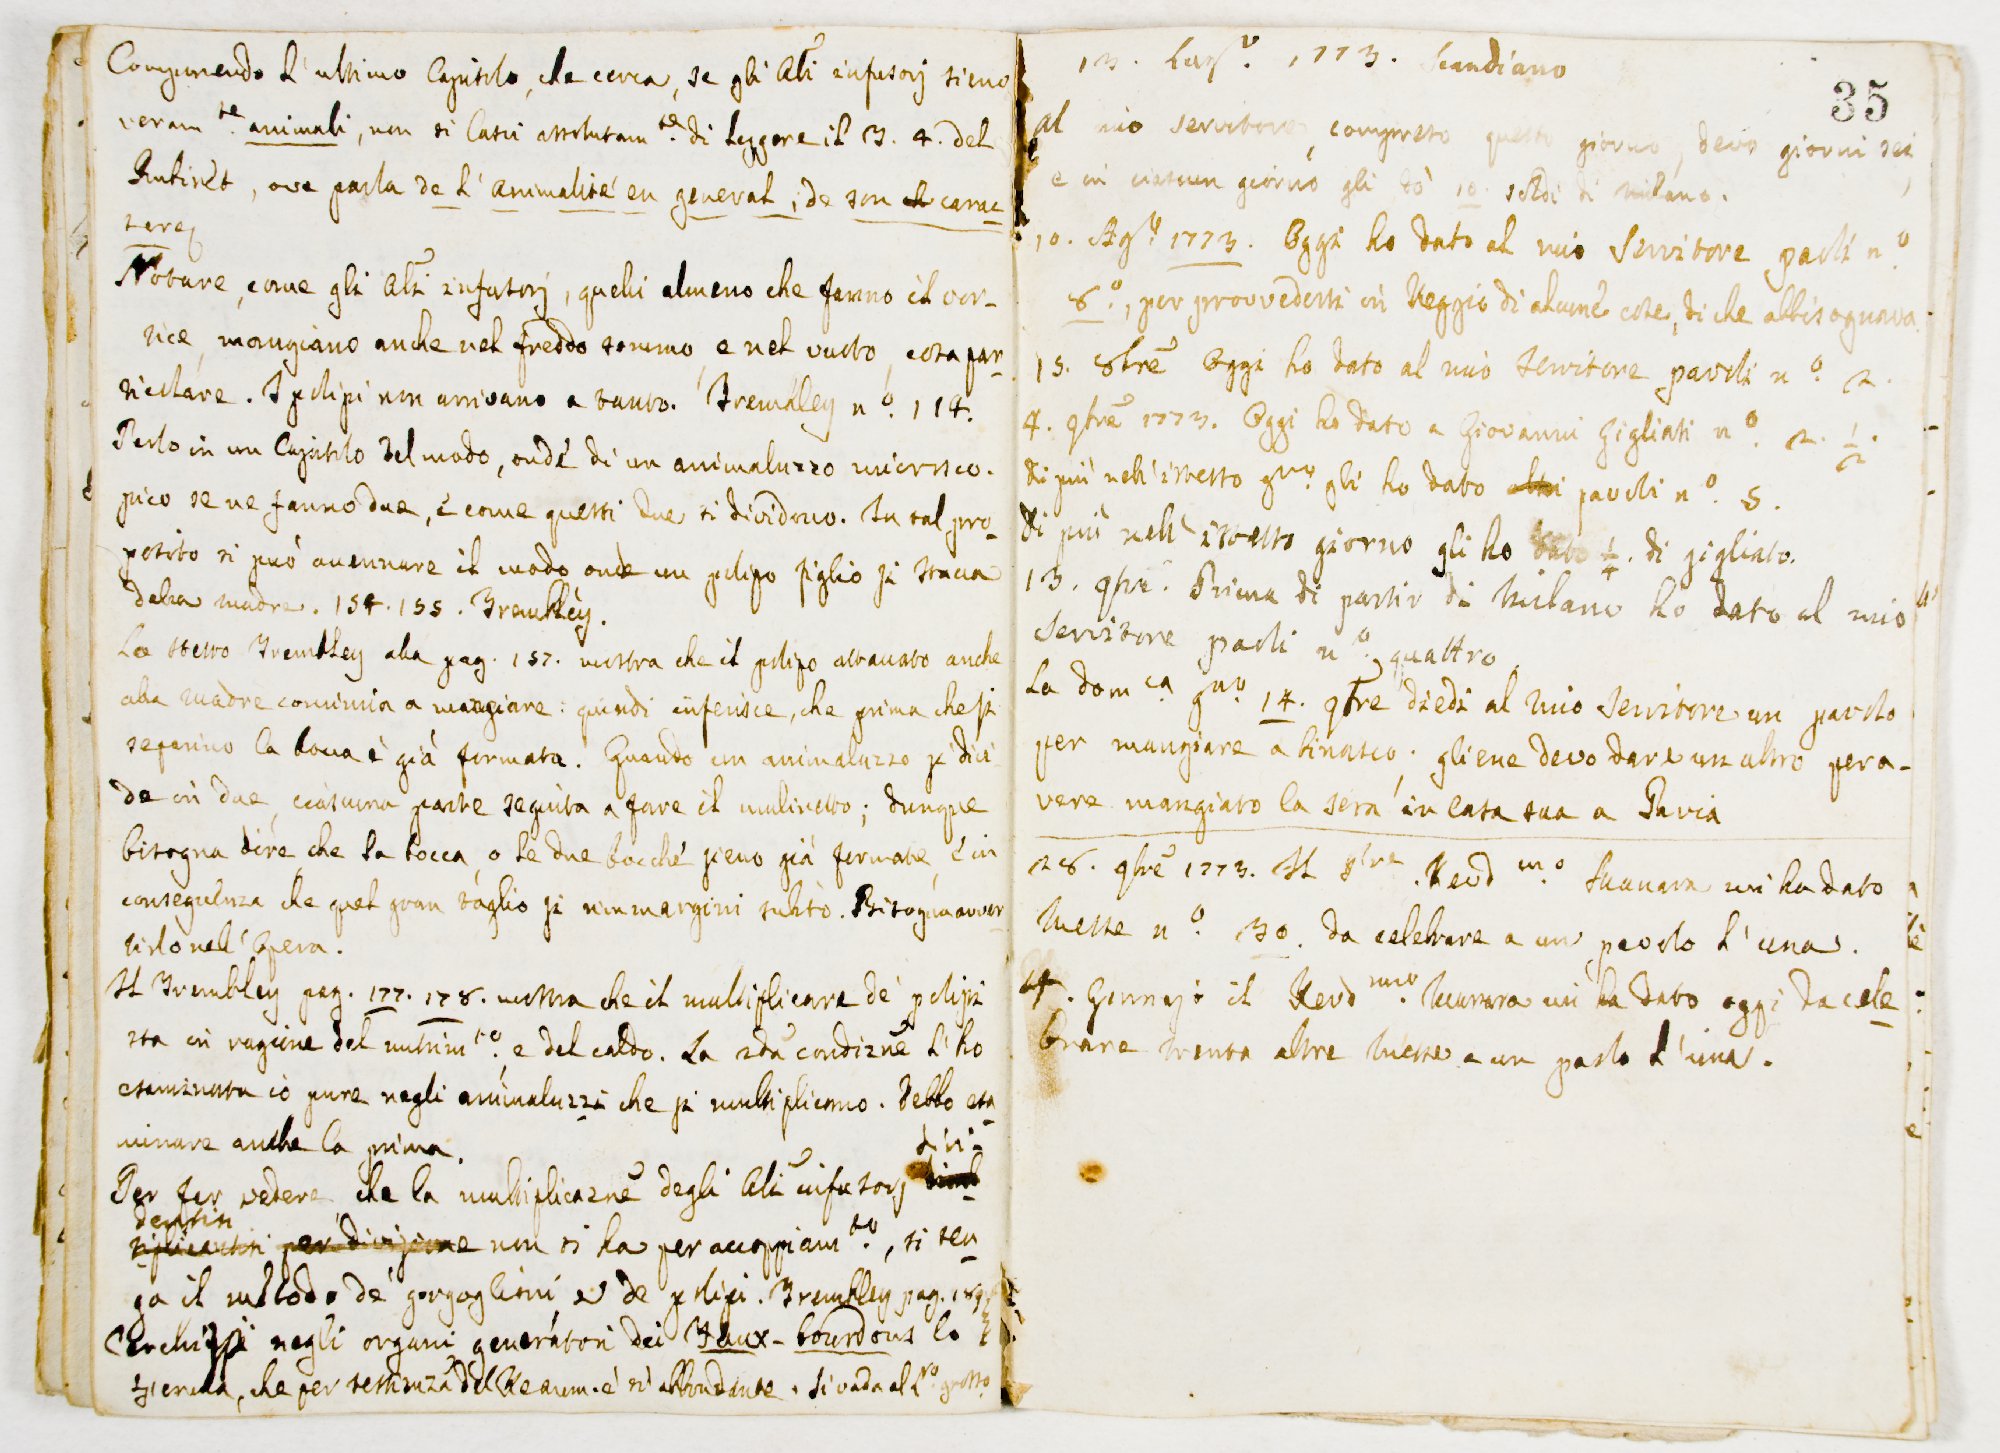 Componendo l'ultimo Capitolo, che cerca, se gli Ali infusorj sieno
veram.te animali, non si lasci assolutam.te di leggere il 3. 4. del
Robinet, ove parla de l'animalité en general, de son carac-
tere
Notare, come gli Ali infusorj, quelli almeno che fanno il vor-
tice, mangiano anche nel freddo sommo, e nel vuoto, cosa par-
ticolare. I polipi non arrivano a tanto. Trembley n.o 114.
Parlo in un Capitolo del modo, ond'è di un animaluzzo microsco-
pico se ne fanno due, e come questi due si dividono. In tal pro-
posito si può accennare il modo onde un polipo figlio si stacca
dalla madre. 154. 155. Trembley.
Lo stesso Trembley alla pag. 157. mostra che il polipo attaccato anche
alla madre comincia a mangiare: quindi inferisce, che prima che si
separino la bocca è già formata. Quando un animaluzzo si divi-
de in due, ciascuna parte seguita a fare il mulinello; dunque
bisogna dire, che la bocca, o le due bocche sieno già formate, e in
conseguenza che quel gran taglio si rimmargini subito. Bisogna avver-
tirlo nell'Opera.
Il Trembley pag. 177. 178. mostra che il multiplicare de' polipi
sta in ragione del nutrim.to e del caldo. La 2da condizne l'ho
esaminata io pure negli animaluzzi che si multiplicano. Debbo esa-
minare anche la prima.
Per far vedere che la multiplicazne degli Ali infusorj divi-
dentisi non si ha per accoppiam.to, si ten-
ga il metodo de' gorgoglioni, e de polipi. Trembley pag. 189
Cerchisi negli organi generatori dei Faux-bourdons lo
sperma, che per testimza del Reaum. è sì abbondante. Si vada al L.ro grosso
13. Lug.o 1773. Scandiano
35
Al mio servitore, compreso questo giorno, devo giorni sei,
e in ciascun giorno gli do 10. soldi di Milano.
10. Ag.o 1773. Oggi ho dato al mio Servitore paoli n.o
8.o, per provvedersi in Reggio di alcune cose, di che abbisognava.
15. 8bre Oggi ho dato al mio Servitore pavoli n.o 2.
4. 9bre 1773. Oggi ho dato a Giovanni Gigliati n.o 2. 1/2.
Di più nell'istesso g.no gli ho dato altri pavoli n.o 5.
Di più nell'istesso giorno gli ho dato 1/4. di gigliato.
13. 9bre. Prima di partir di Milano ho dato al mio
Servitore paoli n.o quattro
La Dom.ca g.no 14. 9bre diedi al mio Servitore un pavolo
per mangiare a Binasco. gliene devo dare un altro per a-
vere mangiato la sera in casa sua a Pavia
28. 9bre 1773. Il Revd.mo mi ha dato
Messe n.o 30. da celebrare a un pavolo l'una.
4. Gennajo il Revd.mo mi ha dato oggi da cele-
brare trenta altre Messe a un paolo l'una.